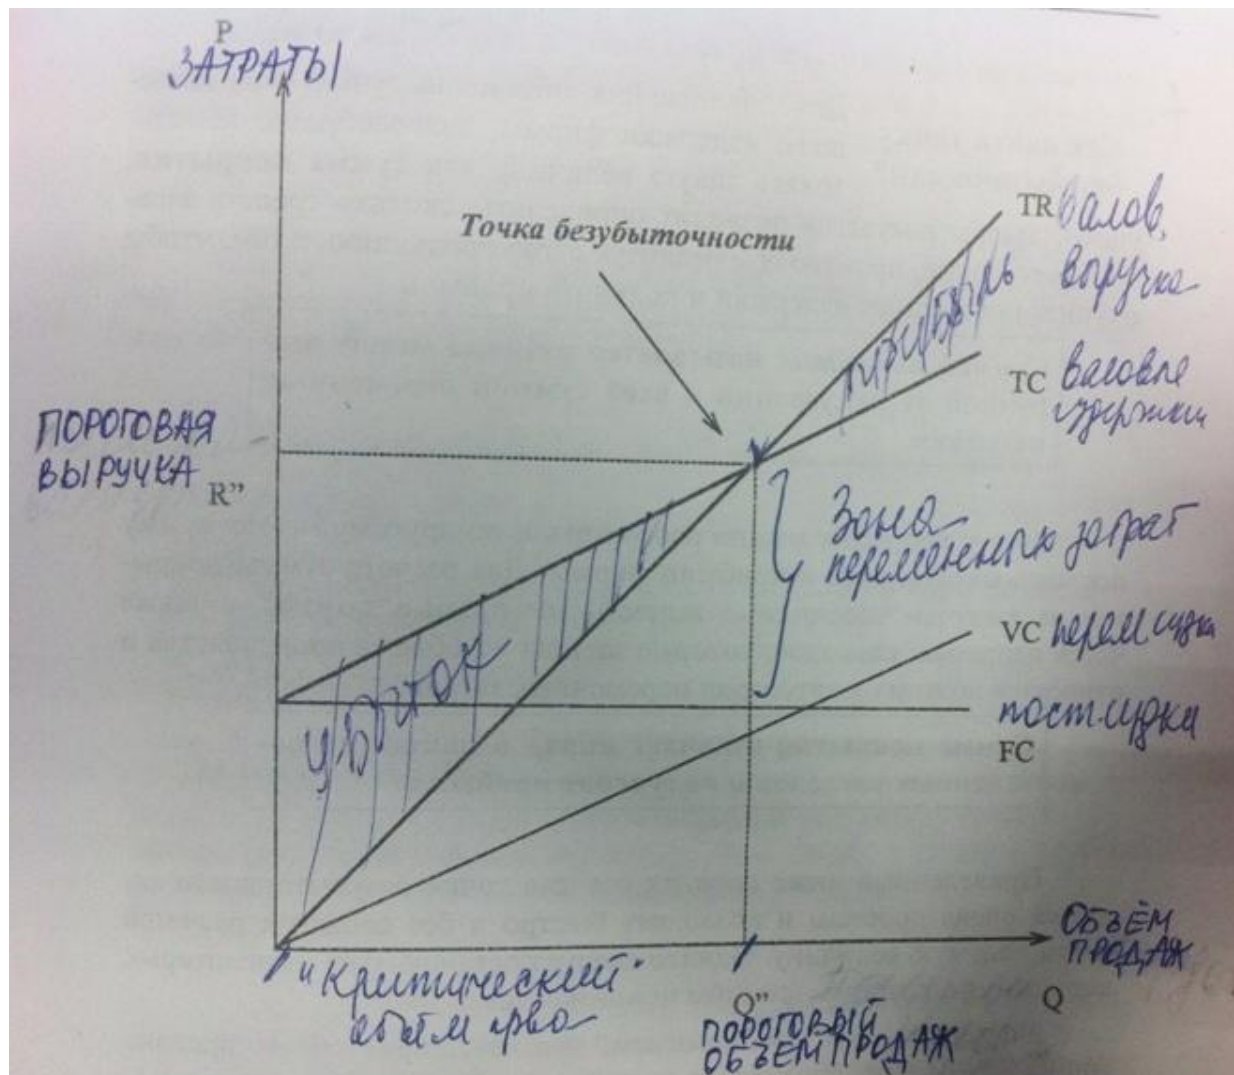 P
ЗАТРАТЫ
Точка безубыточности
TR валов.
выручка
прибыль
TC валовые
издержки
ПОРОГОВАЯ
ВЫРУЧКА
R”
Зона
переменных затрат
убыток
VC перем издки
пост издки
FC
ОБЪЁМ
ПРОДАЖ
"Критический"
объём пр-ва
Q”
Q
ПОРОГОВЫЙ
ОБЪЕМ ПРОДАЖ